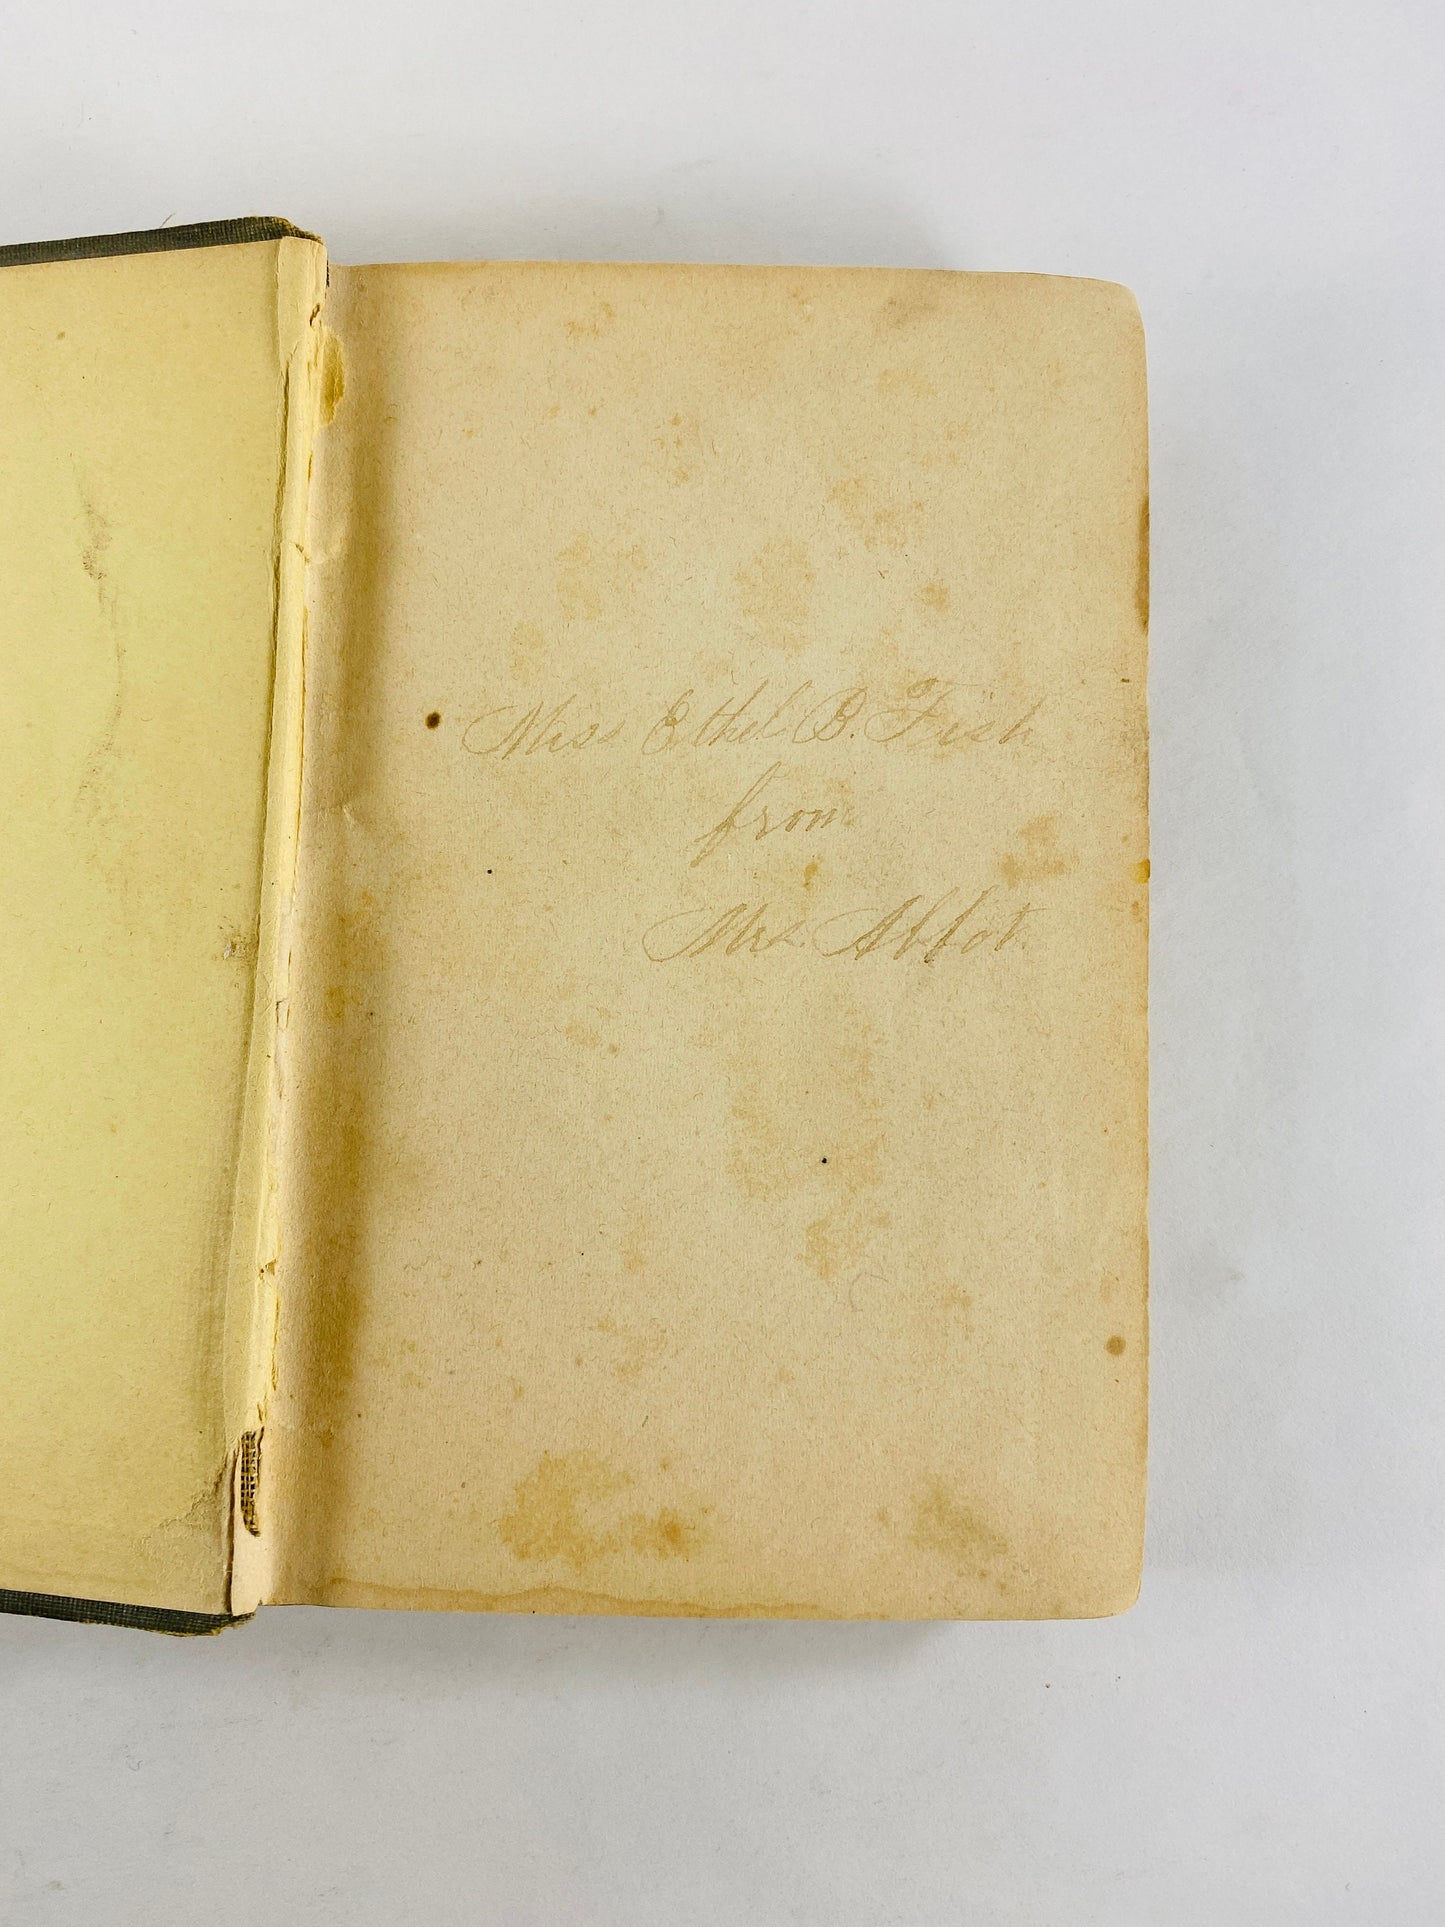 Miss Ethel B. Fish
from
Mrs. Abbot